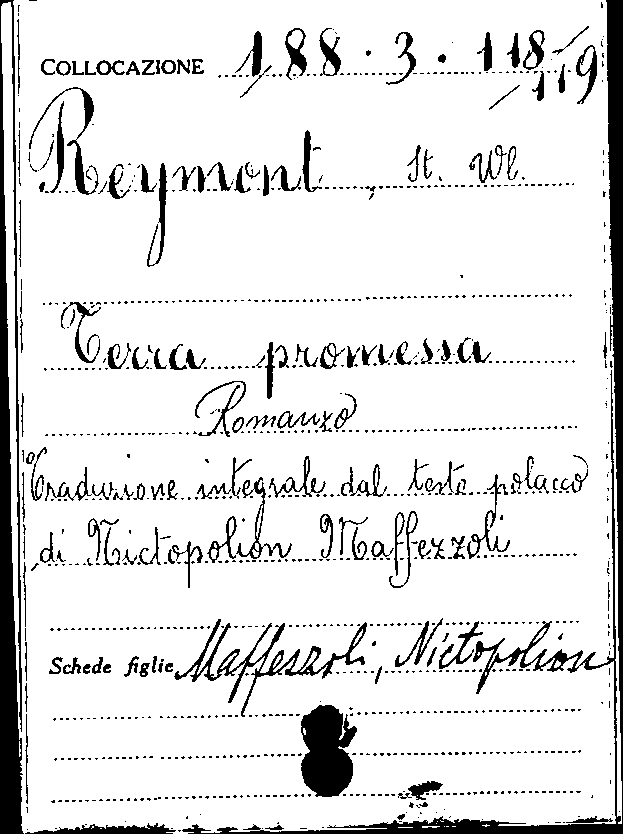 COLLOCAZIONE 188.3.118-
/119
Reymont, St. Wl.
Terra promessa
Romanzo
Traduzione integrale dal testo polacco
di Nictopolion Maffezzoli
Schede figlie Maffezzoli, Nictopolion